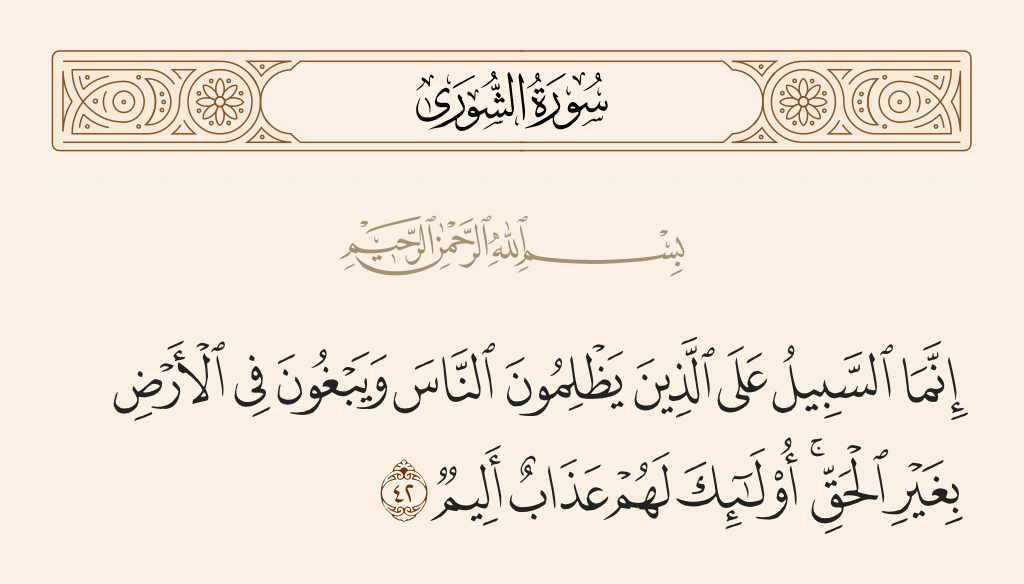 سُورَةُ الشُّورَىٰ
بِسْمِ ٱللَّهِ ٱلرَّحْمَٰنِ ٱلرَّحِيمِ
إِنَّمَا ٱلسَّبِيلُ عَلَى ٱلَّذِينَ يَظْلِمُونَ ٱلنَّاسَ وَيَبْغُونَ فِى ٱلْأَرْضِ
بِغَيْرِ ٱلْحَقِّ ۚ أُو۟لَـٰٓئِكَ لَهُمْ عَذَابٌ أَلِيمٌ ٤٢